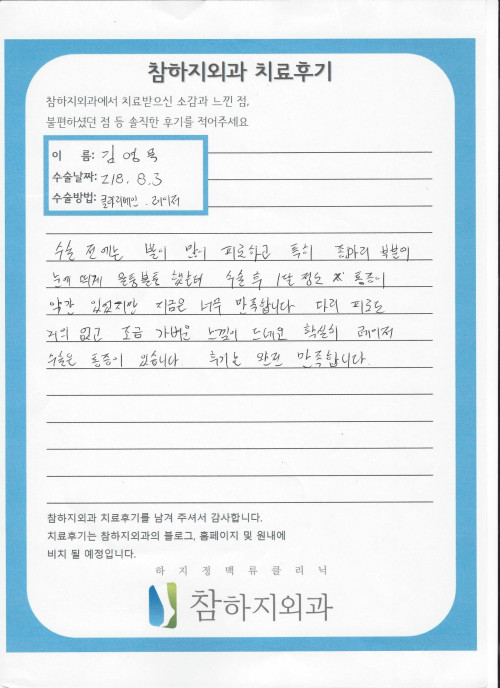 참하지외과 치료후기
참하지외과에서 치료받으신 소감과 느낀 점,
불편하셨던 점 등 솔직한 후기를 적어주세요
이 름: 김영
수술날짜: 218. 8. 3
수술방법: 클라리베인 . 레이저
수술 전에는 발이 많이 피로하고 특히 종아리
눈에 띄게 했는데 수술 후 1달 정도 통증이
약간 있었지만 지금은 너무 만족합니다 다리 피로도
거의 없고 조금 가벼운 느낌이 드네요 확실히 레이저
수술은 통증이 있습니다 후기는 완전 만족합니다.
참하지외과 치료후기를 남겨 주셔서 감사합니다.
치료후기는 참하지외과의 블로그, 홈페이지 및 원내에
비치 될 예정입니다.
하지정맥류클리닉
참하지외과